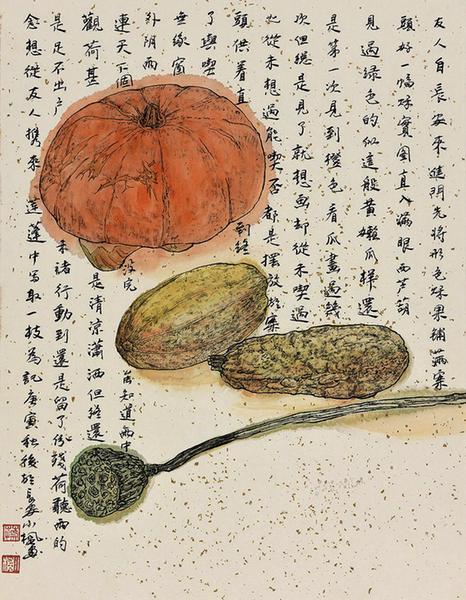 友人自長安來進門先將形色蔬果鋪滿案
頭好一幅實圖直入滿眼西芦葫
見過綠色的似這般黃嫩瓜樣還
是第一次見到橙色看瓜畫過幾
次但總是見了就想画却從未喫過
也從未想過能喫否都是擺放於案
頭供着直到終
了與喫
無緣窗
外陰雨
連天下個沒完知道雨中
觀荷甚是清凉瀟洒但終還
是足不出户未諸行動到還是留了殘荷聽雨的
念想從友人携來蓮蓬中寫取一枝為記庚寅秋後於長安小楓画